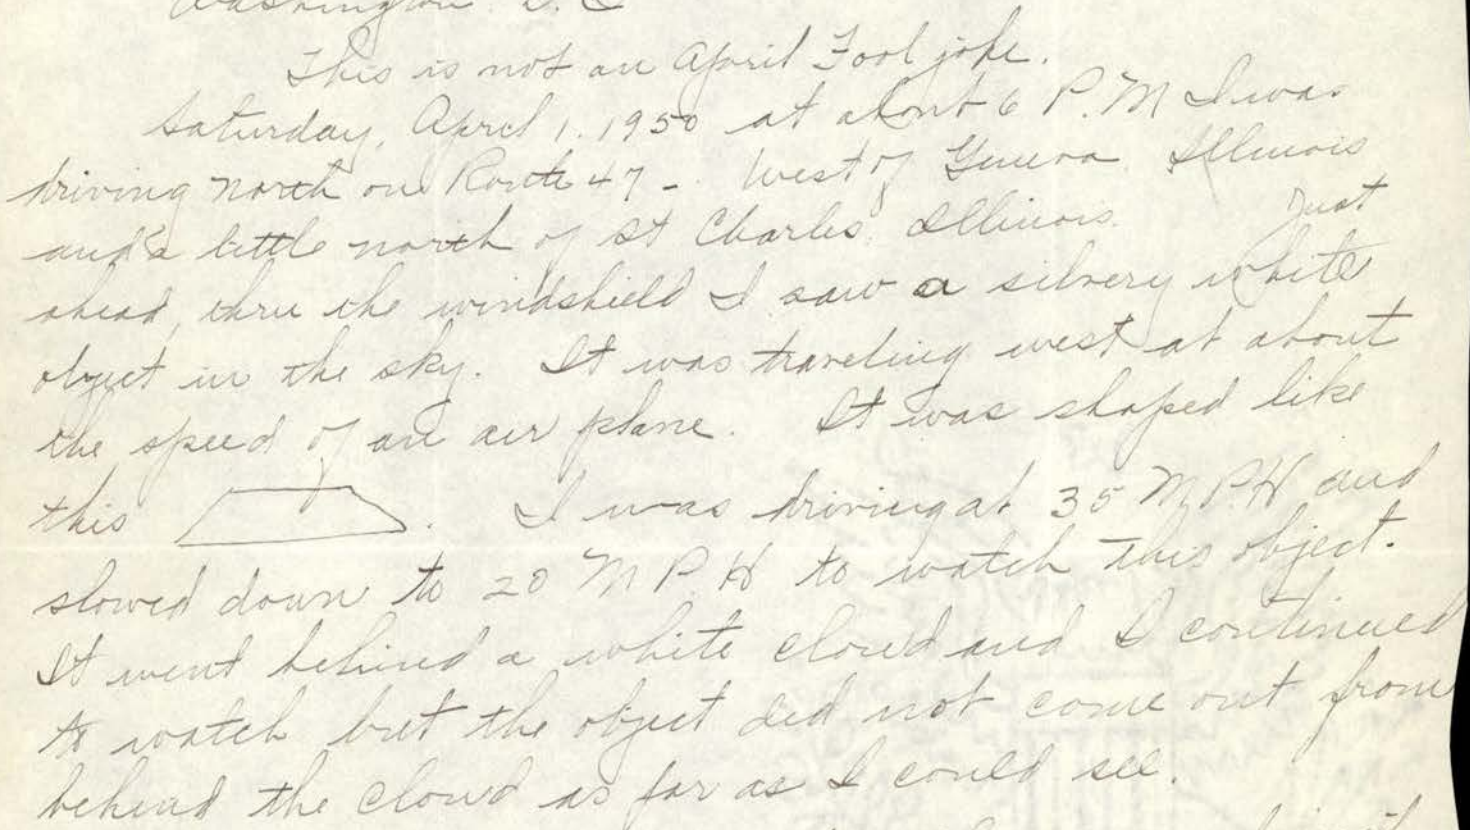 Washington D.C
This is not an April Fool joke.
Saturday, April 1. 1950 at about 6 P.M I was
driving north on Route 47 - West of Geneva Illinois
and a little north of St Charles Illinois. Just
ahead, thru the windshield I saw a silvery white
object in the sky. It was traveling west at about
the speed of an air plane. It was shaped like
this . I was driving at 35 M.P.H and
slowed down to 20 M.P.H to watch this object.
It went behind a white cloud and I continued
to watch but the object did not come out from
behind the cloud as far as I could see.